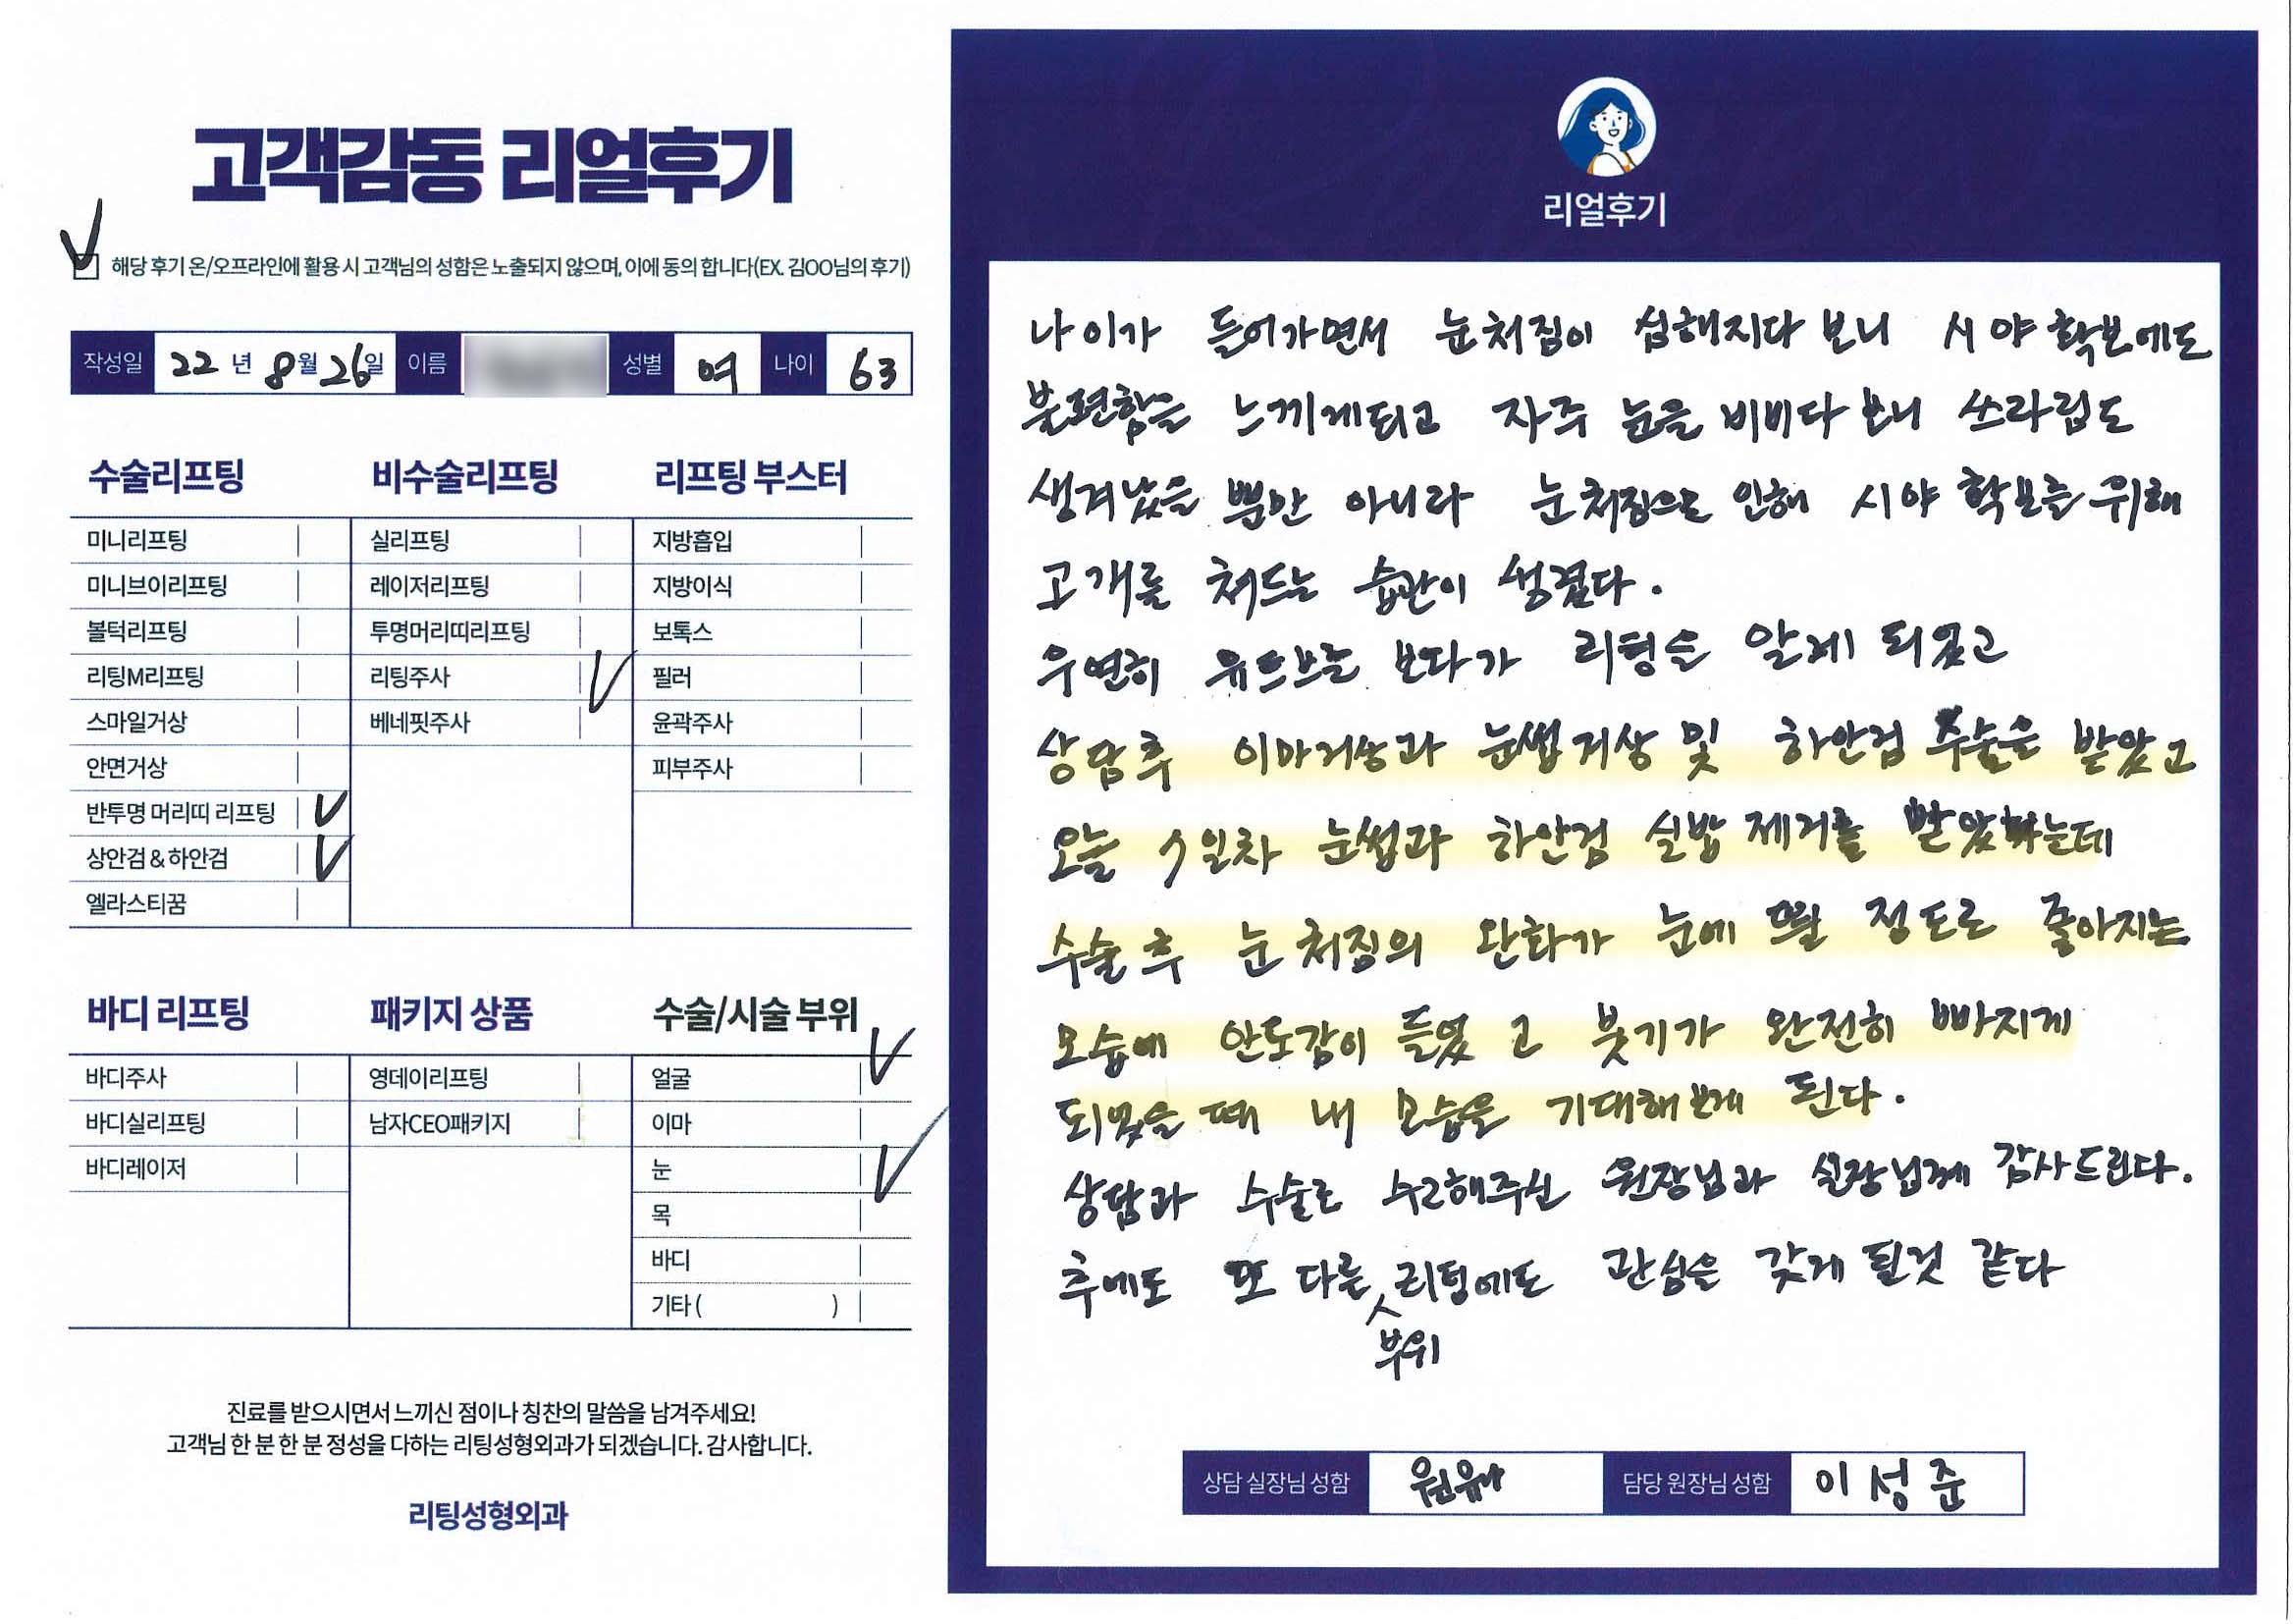 고객감동 리얼후기
해당 후기 온/오프라인에 활용 시 고객님의 성함은 노출되지 않으며, 이에 동의 합니다(EX. 김OO님의 후기)
작성일 22 년 8월 26일 이름 성별 여 나이 63
수술리프팅
미니리프팅
미니브이리프팅
볼턱리프팅
리팅M리프팅
스마일거상
안면거상
반투명 머리띠 리프팅
상안검 & 하안검
엘라스티꿈
비수술리프팅
실리프팅
레이저리프팅
투명머리띠리프팅
리팅주사
베네핏주사
리프팅 부스터
지방흡입
지방이식
보톡스
필러
윤곽주사
피부주사
바디 리프팅
바디주사
바디실리프팅
바디레이저
패키지 상품
영데이리프팅
남자CEO패키지
수술/시술 부위
얼굴
이마
눈
목
바디
기타 ( )
진료를 받으시면서 느끼신 점이나 칭찬의 말씀을 남겨주세요!
고객님 한 분 한 분 정성을 다하는 리팅성형외과가 되겠습니다. 감사합니다.
리팅성형외과
리얼후기
나이가 들어가면서 눈처짐이 심해지다 보니 시야 확보에도
불편함을 느끼게되고 자주 눈을 비비다 보니 쓰라림도
생겨났을 뿐만 아니라 눈처짐으로 인해 시야 확보를 위해
고개를 쳐드는 습관이 생겼다.
우연히 유튜브를 보다가 리팅을 알게 되었고
상담후 이마거상과 눈썹거상 및 하안검 수술을 받았고
오늘 7일차 눈썹과 하안검 실밥 제거를 받았는데
수술 후 눈 처짐의 완화가 눈에 띌 정도로 좋아지는
모습에 안도감이 들었고 붓기가 완전히 빠지게
되었을 때 내 모습을 기대해보게 된다.
상담과 수술로 수고해주신 원장님과 실장님께 감사드린다.
추에도 또 다른 부위 리팅에도 관심을 갖게 될것 같다
상담 실장님 성함 담당 원장님 성함 이성준